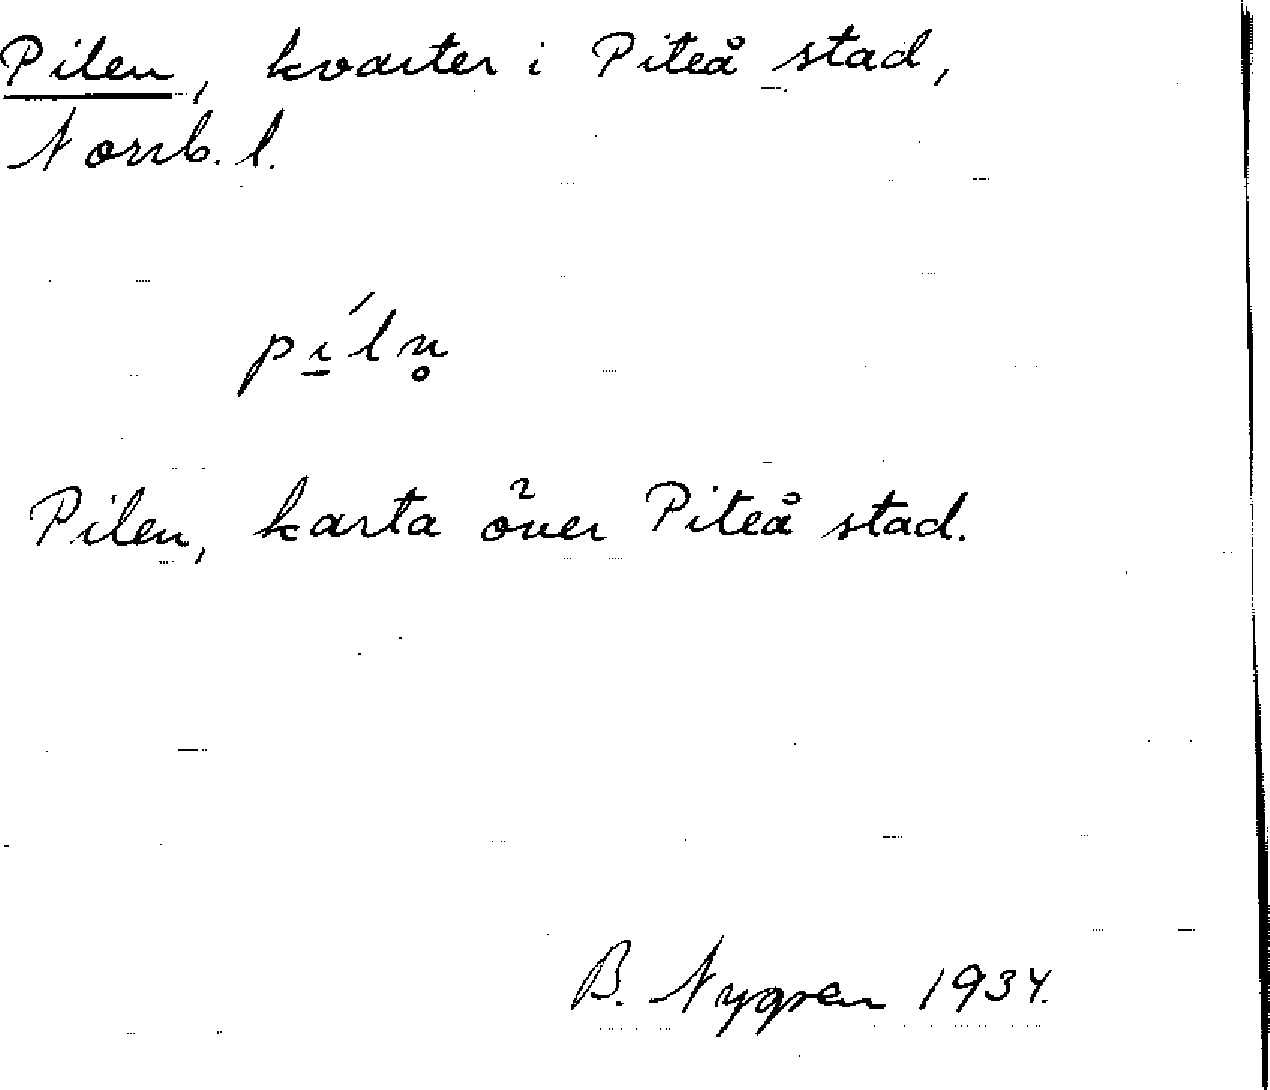 Pilen, kvarter i Piteå stad,
Norrb. l.
pi̠´ln̥
Pilen, karta över Piteå stad.
B. Nygren 1934.